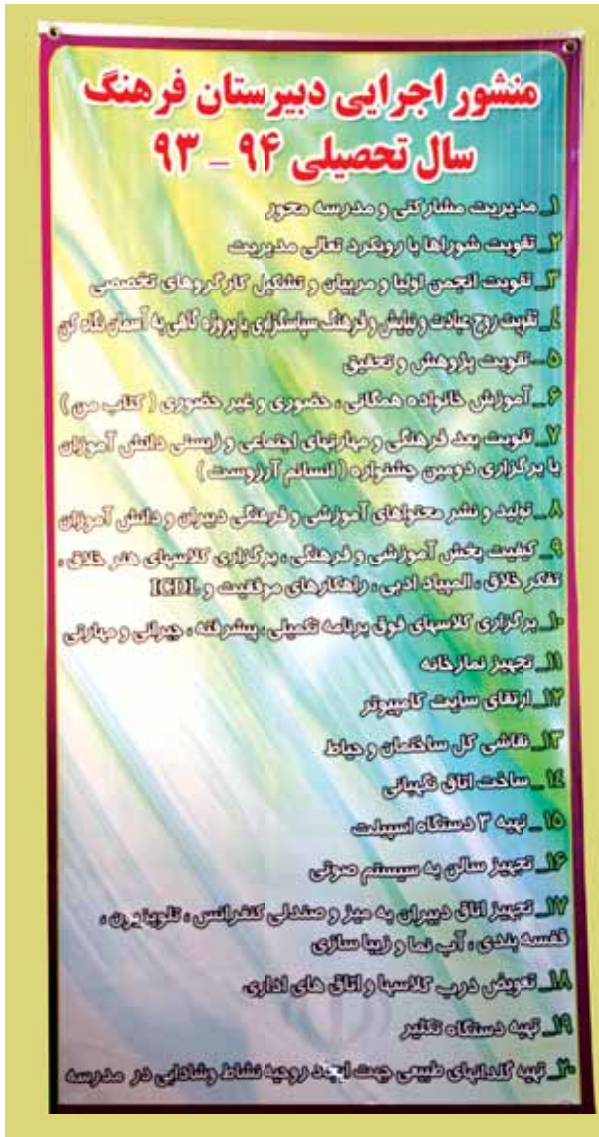 منشور اجرایی دبیرستان فرهنگ
سال تحصیلی ۹۴ - ۹۳
۱_ مدیریت مشارکتی و مدرسه محور
۲_ تقویت شوراها با رویکرد تعالی مدیریت
۳_ تقویت انجمن اولیا و مربیان و تشکیل کارگروهای تخصصی
۴_ تقویت روح عبادت و نیایش و فرهنگ سپاسگزاری با پروژه گاهی به آسمان نگاه کن
۵_ تقویت پژوهش و تحقیق
۶_ آموزش خانواده همگانی ، حضوری و غیر حضوری ( کتاب من )
۷_ تقویت بعد فرهنگی و مهارتهای اجتماعی و زیستی دانش آموزان
با برگزاری دومین جشنواره ( انسانم آرزوست )
۸_ تولید و نشر محتواهای آموزشی و فرهنگی دبیران و دانش آموزان
۹_ کیفیت بخش آموزشی و فرهنگی ، برگزاری کلاسهای هنر خلاق ،
تفکر خلاق ، المپیاد ادبی ، راهکارهای موفقیت و ICDL
۱۰_ برگزاری کلاسهای فوق برنامه تکمیلی ، پیشرفته ، جبرانی و مهارتی
۱۱_ تجهیز نمازخانه
۱۲_ ارتقای سایت کامپیوتر
۱۳_ نقاشی کل ساختمان و حیاط
۱۴_ ساخت اتاق نگهبانی
۱۵_ تهیه ۳ دستگاه اسپیلت
۱۶_ تجهیز سالن به سیستم صوتی
۱۷_ تجهیز اتاق دبیران به میز و صندلی کنفرانس ، تلویزیون ،
قفسه بندی ، آب نما و زیبا سازی
۱۸_ تعویض درب کلاسها و اتاق های اداری
۱۹_ تهیه دستگاه تکثیر
۲۰_ تهیه گلدانهای طبیعی جهت ایجد روحیه نشاط وشادابی در مدرسه